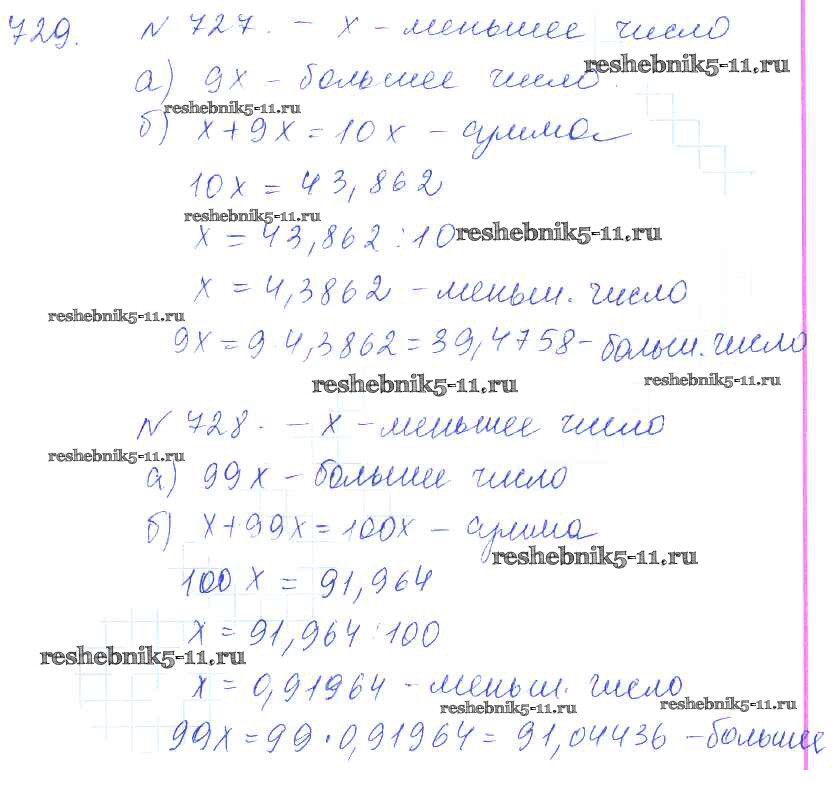 729. № 727. – x – меньшее число
reshebnik5-11.ru
а) 9x – большее число.
reshebnik5-11.ru
б) x + 9x = 10x – сумма
10x = 43,862
reshebnik5-11.ru
x = 43,862 : 10
reshebnik5-11.ru
x = 4,3862 – меньш. число
reshebnik5-11.ru
9x = 9 · 4,3862 = 39,4758 – больш. число
reshebnik5-11.ru
reshebnik5-11.ru
№ 728. – x – меньшее число
reshebnik5-11.ru
а) 99x – большее число
б) x + 99x = 100x – сумма
reshebnik5-11.ru
100x = 91,964
x = 91,964 : 100
reshebnik5-11.ru
x = 0,91964 – меньш. число
reshebnik5-11.ru
reshebnik5-11.ru
99x = 99 · 0,91964 = 91,04436 – большее